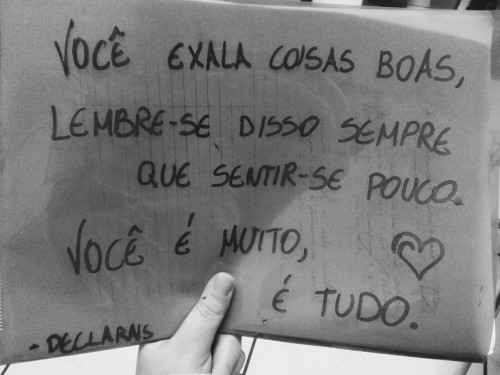 VOCÊ EXALA COISAS BOAS,
LEMBRE-SE DISSO SEMPRE
QUE SENTIR-SE POUCO.
VOCÊ É MUITO,
É TUDO.
- DECLARAIS